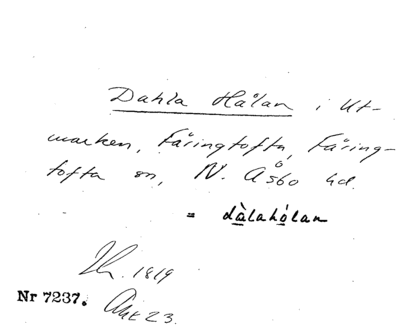 Dahla Hålan i Ut-
marken, Färingtofta, Färing-
tofta sn, N. Åsbo hd.
= dàlahólan
1819
Nr 7237. Akt 23.